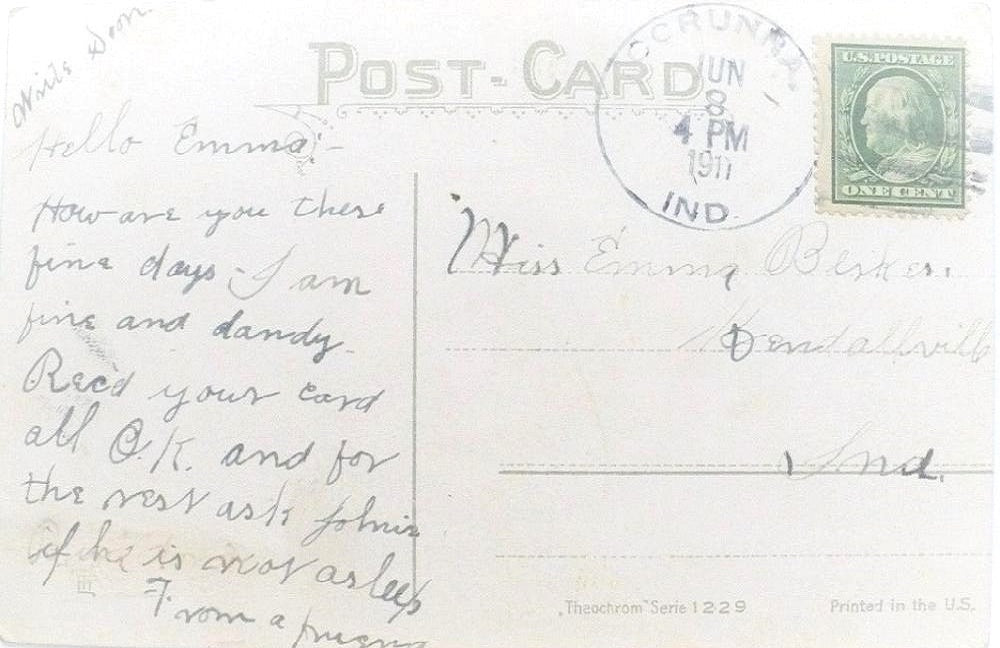 Write Soon.
POST-CARD
CORUNNA
JUN
8
4 PM
1911
IND.
U.S. POSTAGE
ONE CENT
Hello Emma:-
How are you these
fine days - I am
fine and dandy.
Rec'd your card
all O.K. and for
the rest ask Johnie
if he is not asleep
From a friend
Miss Emma
Kendallville
Ind.
„Theochrom" Serie 1229
Printed in the U.S.